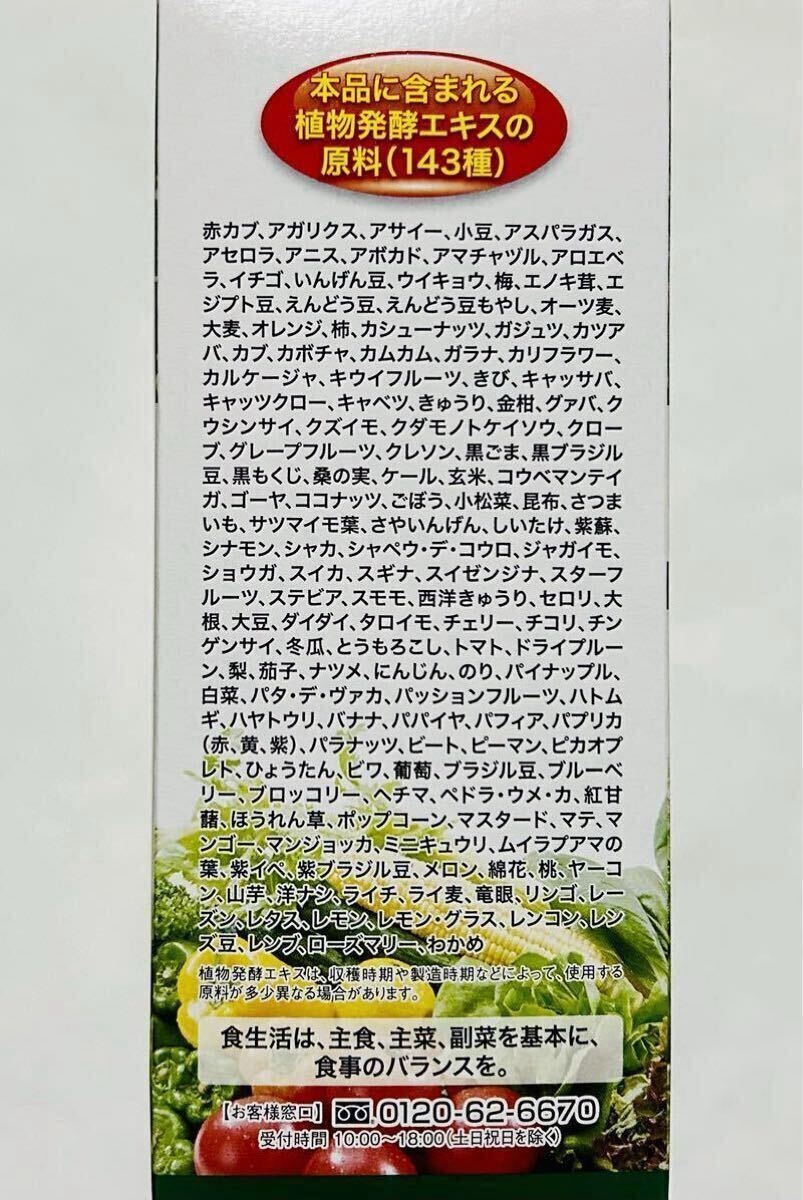 本品に含まれる
植物発酵エキスの
原料(143種)
赤カブ、アガリクス、アサイー、小豆、アスパラガス、
アセロラ、アニス、アボカド、アマチャヅル、アロエベ
ラ、イチゴ、いんげん豆、ウイキョウ、梅、エノキ茸、エ
ジプト豆、えんどう豆、えんどう豆もやし、オーツ麦、
大麦、オレンジ、柿、カシューナッツ、ガジュツ、カツア
バ、カブ、カボチャ、カムカム、ガラナ、カリフラワー、
カルケージャ、キウイフルーツ、きび、キャッサバ、
キャッツクロー、キャベツ、きゅうり、金柑、グァバ、ク
ウシンサイ、クズイモ、クダモノトケイソウ、クロー
ブ、グレープフルーツ、クレソン、黒ごま、黒ブラジル
豆、黒もくじ、桑の実、ケール、玄米、コウベマンテイ
ガ、ゴーヤ、ココナッツ、ごぼう、小松菜、昆布、さつま
いも、サツマイモ葉、さやいんげん、しいたけ、紫蘇、
シナモン、シャカ、シャペウ・デ・コウロ、ジャガイモ、
ショウガ、スイカ、スギナ、スイゼンジナ、スターフ
ルーツ、ステビア、スモモ、西洋きゅうり、セロリ、大
根、大豆、ダイダイ、タロイモ、チェリー、チコリ、チン
ゲンサイ、冬瓜、とうもろこし、トマト、ドライプルー
ン、梨、茄子、ナツメ、にんじん、のり、パイナップル、
白菜、パタ・デ・ヴァカ、パッションフルーツ、ハトム
ギ、ハヤトウリ、バナナ、パパイヤ、パフィア、パプリカ
(赤、黄、紫)、パラナッツ、ビート、ピーマン、ピカオプ
レト、ひょうたん、ビワ、葡萄、ブラジル豆、ブルーベ
リー、ブロッコリー、ヘチマ、ペドラ・ウメ・カ、紅甘
藷、ほうれん草、ポップコーン、マスタード、マテ、マ
ンゴー、マンジョッカ、ミニキュウリ、ムイラプアマの
葉、紫イペ、紫ブラジル豆、メロン、綿花、桃、ヤーコ
ン、山芋、洋ナシ、ライチ、ライ麦、竜眼、リンゴ、レー
ズン、レタス、レモン、レモン・グラス、レンコン、レン
ズ豆、レンブ、ローズマリー、わかめ
植物発酵エキスは、収穫時期や製造時期などによって、使用する
原料が多少異なる場合があります。
食生活は、主食、主菜、副菜を基本に、
食事のバランスを。
【お客様窓口】0120-62-6670
受付時間 10:00〜18:00(土日祝日を除く)